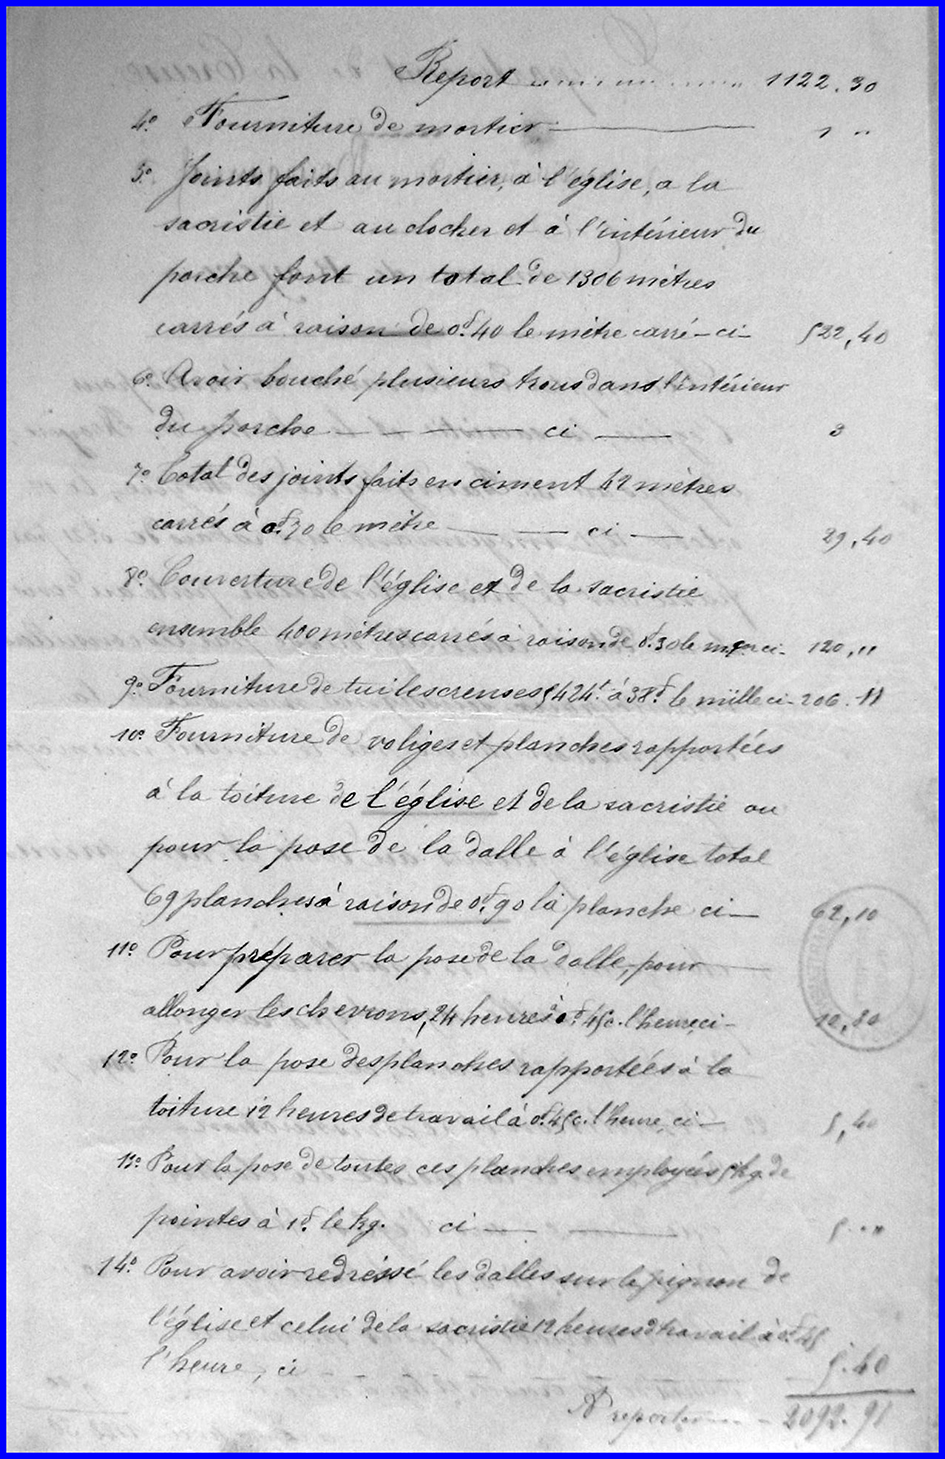 Report 1122.30
4º Fourniture de mortier 1 "
5º Joints faits au mortier, à l'église, a la
sacristie et au clocher et à l'intérieur du
porche font un total de 1306 mètres
carrés à raison de 0f.40 le mètre carré - ci - 522,40
6º Avoir bouché plusieurs trous dans l'intérieur
du porche ci 3
7º Total des joints faits en ciment 42 mètres
carrés à 0f.70 le mètre ci 29,40
8º Couverture de l'église et de la sacristie
ensemble 400 mètres carrés à raison de 0f.30 le ci - 120,"
9º Fourniture de tuiles creuses 5424t. à 38f. le mille ci - 206.11
10º Fourniture de voliges et planches rapportées
à la toiture de l'église et de la sacristie ou
pour la pose de la dalle à l'église total
69 planches à raison de 0f.90 la planche ci - 62,10
11º Pour préparer la pose de la dalle, pour
allonger les chevrons, 24 heures à 0f.45c. l'heure ci - 10,80
12º Pour la pose des planches rapportées à la
toiture 12 heures de travail à 0f.45c. l'heure, ci - 5,40
13º Pour la pose de toutes ces planches employées 5kg. de
pointes à 1f. le kg. ci 5. "
14º Pour avoir redressé les dalles sur le pignon de
l'église et celui de la sacristie 12 heures de travail à 0f.45
l'heure, ci 5.40
A reporter 2092.91